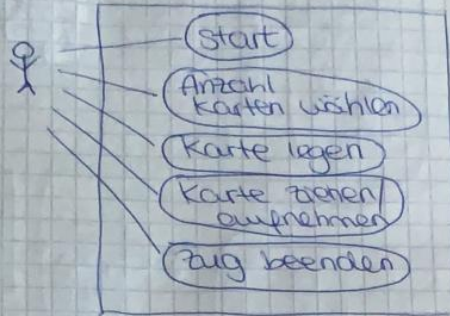 Start
Anzahl
Karten wählen
Karte legen
Karte ziehen/
aufnehmen
Zug beenden